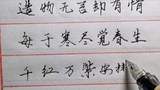 造物无言却有情
每于寒尽觉春生
千红万紫安排